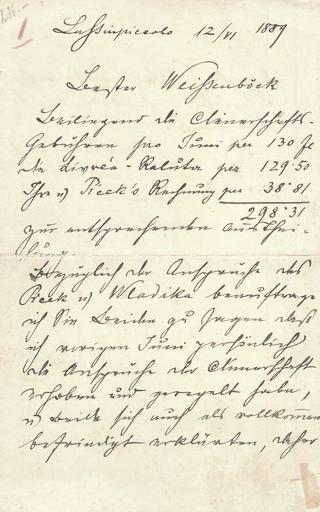 Lussinpiccolo 12/VI 1889
Bester Weissenböck
Beiliegend die Dienerschafts-
Gebühren pro Juni per 130 fl
die Livrée-Reluta per 129·50
Ihre u) Pieck's Rechnung per 38·81
298·31
zur entsprechenden Austhei-
lung.
Bezüglich der Ansprüche des
Pieck u) Wladika beauftrage
ich Sie Beiden zu sagen daß
ich vorigen Juni persönlich
die Ansprüche der Dienerschaft
erhoben und geregelt habe,
u) Beide sich auch als vollkommen
befriedigt erklärten, daher